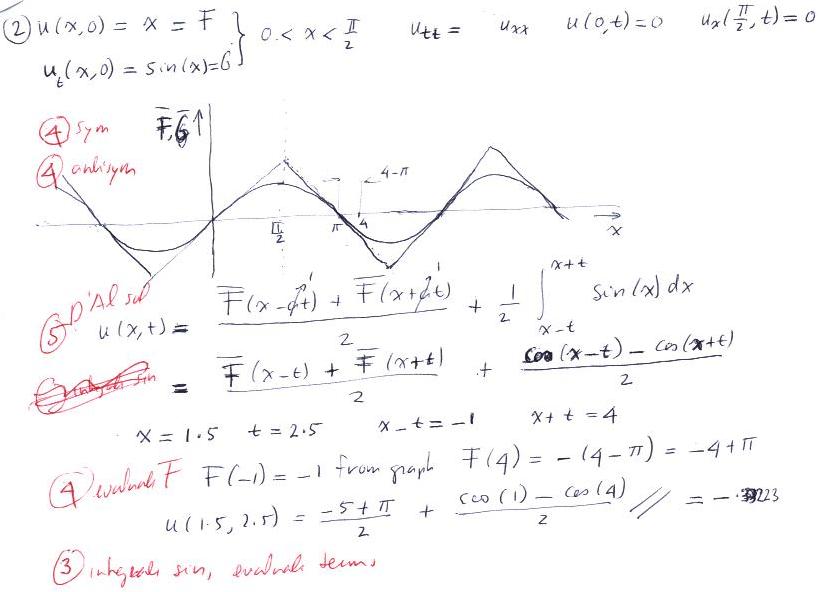 ② u(x,0) = x = F } 0 < x < π/2 u_tt = u_xx u(0,t)=0 u_x(π/2,t)=0
u_t(x,0) = sin(x)=G
④ sym F̄,Ḡ↑
④ antisym 4-π
π/2 π 4 x
⑤ D'Al sol u(x,t) = (F̄(x-¢t) + F̄(x+¢t))/2 + 1/2 ∫_{x-t}^{x+t} sin(x) dx
= (F̄(x-t) + F̄(x+t))/2 + (cos(x-t) - cos(x+t))/2
x = 1.5 t = 2.5 x-t = -1 x+t = 4
④ evaluate F F(-1) = -1 from graph F(4) = -(4-π) = -4+π
u(1.5, 2.5) = (-5+π)/2 + (cos(1) - cos(4))/2 // = -.
③ integrate sin, evaluate terms